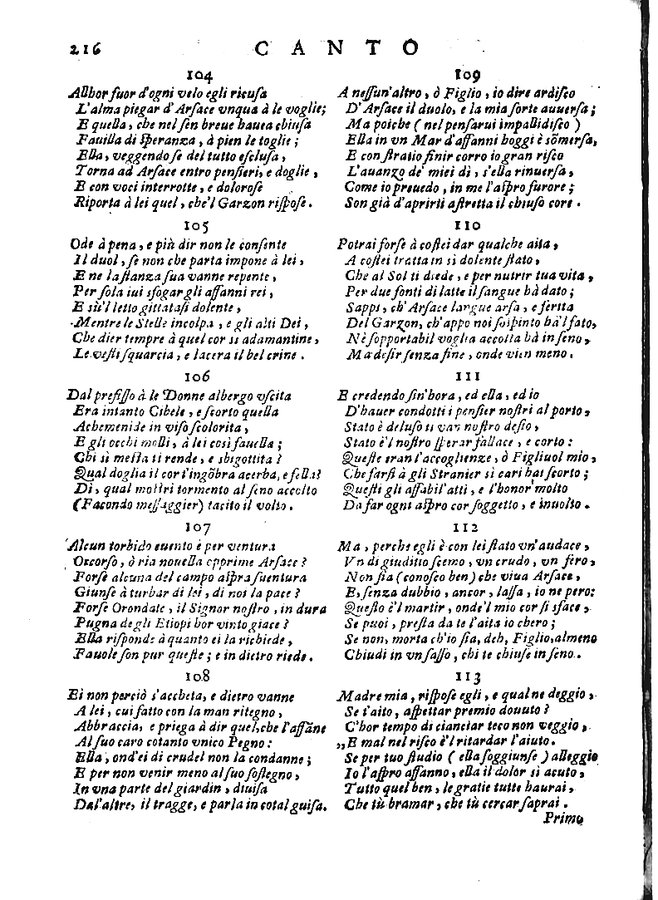 216 CANTO
104
Allhor fuor d'ogni velo egli ricusa
L'alma piegar d'Arsace vnqua à le voglie;
E quella, che nel sen breue hauea chiusa
Fauilla di speranza, à pien le toglie;
Ella, veggendo se del tutto esclusa,
Torna ad Arsace entro pensieri, e doglie,
E con voci interrotte, e dolorose
Riporta à lei quel, che'l Garzon rispose.
105
Ode à pena, e più dir non le consente
Il duol, se non che parta impone à lei,
E ne la stanza sua vanne repente,
Per sola iui sfogar gli affanni rei,
E sù'l letto gittatasi dolente,
Mentre le Stelle incolpa, e gli alti Dei,
Che dier tempre à quel cor si adamantine,
Le vesti squarcia, e lacera il bel crine.
106
Dal prefisso à le Donne albergo vscita
Era intanto Cibele, e scorto quella
Achemenide in viso scolorita,
E gli occhi molli, à lei così fauella;
Chi sì mesta ti rende, e sbigottita?
Qual doglia il cor t'ingõbra acerba, e fella?
Di, qual mostri tormento al seno accolto
(Facondo messaggier) tacito il volto.
107
Alcun torbido euento è per ventura
Occorso, ò ria nouella opprime Arsace?
Forse alcuna del campo aspra suentura
Giunse à turbar di lei, di noi la pace?
Forse Orondate, il Signor nostro, in dura
Pugna degli Etiopi hor vinto giace?
Ella risponde à quanto ei la richiede,
Fauole son pur queste; e in dietro riede.
108
Ei non perciò s'accheta, e dietro vanne
A lei, cui fatto con la man ritegno,
Abbraccia, e priega à dir quel, che l'affãne
Al suo caro cotanto vnico Pegno:
Ella, ond'ei di crudel non la condanne;
E per non venir meno al suo sostegno,
In vna parte del giardin, diuisa
Dal'altre, il tragge, e parla in cotal guisa.
109
A nessun'altro, ò Figlio, io dire ardisco
D'Arsace il duolo, e la mia sorte auuersa;
Ma poiche (nel pensarui impallidisco)
Ella in vn Mar d'affanni hoggi è sõmersa,
E con stratio finir corro io gran risco
L'auanzo de' miei dì, s'ella rinuersa,
Come io preuedo, in me l'aspro furore;
Son già d'aprirti astretta il chiuso core.
110
Potrai forse à costei dar qualche aita,
A costei tratta in si dolente stato,
Che al Sol ti diede, e per nutrir tua vita,
Per due fonti di latte il sangue hà dato;
Sappi, ch'Arsace langue arsa, e ferita
Del Garzon, ch'appo noi sospinto hà'l fato,
Nè sopportabil voglia accolta hà in seno,
Ma desir senza fine, onde vien meno.
111
E credendo sin'hora, ed ella, ed io
D'hauer condotti i pensier nostri al porto,
Stato è deluso il van nostro desio,
Stato è'l nostro sperar fallace, e corto:
Queste eran l'accoglienze, ò Figliuol mio,
Che farsi à gli Stranier si cari hai scorto;
Questi gli affabil'atti, e l'honor molto
Da far ogni aspro cor soggetto, e inuolto.
112
Ma, perche egli è con lei stato vn'audace,
Vn di giuditio scemo, vn crudo, vn firo,
Non fia (conosco ben) che viua Arsace,
E, senza dubbio, ancor, lassa, io ne pero:
Questo è'l martir, onde'l mio cor si sface,
Se puoi, presta da te l'aita io chero;
Se non, morta ch'io sia, deh, Figlio, almeno
Chiudi in vn sasso, chi te chiuse in seno.
113
Madre mia, rispose egli, e qual ne deggio,
Se t'aito, aspettar premio douuto?
C'hor tempo di cianciar teco non veggio,
„E mal nel risco è'l ritardar l'aiuto.
Se per tuo studio (ella soggiunse) alleggio
Io l'aspro affanno, ella il dolor si acuto,
Tutto quel ben, le gratie tutte haurai,
Che tù bramar, che tù cercar saprai.
Prima